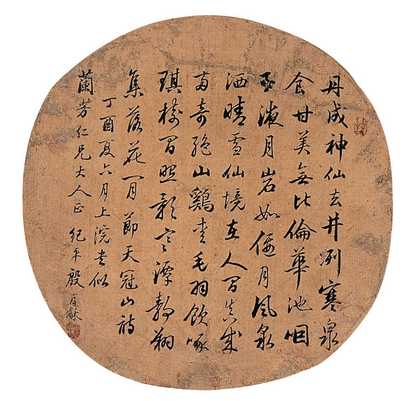 丹成神仙去井冽寒泉
食甘美無比倫華池咽
玉液月岩如偃月風泉
洒晴雪仙境在人間真成
兩奇絕山鷄愛毛羽飲啄
琪樹間照影寒潭靜翔
集落花閒節天冠山詩
丁酉夏六月上浣書似
蘭芳仁兄大人正紀平殷